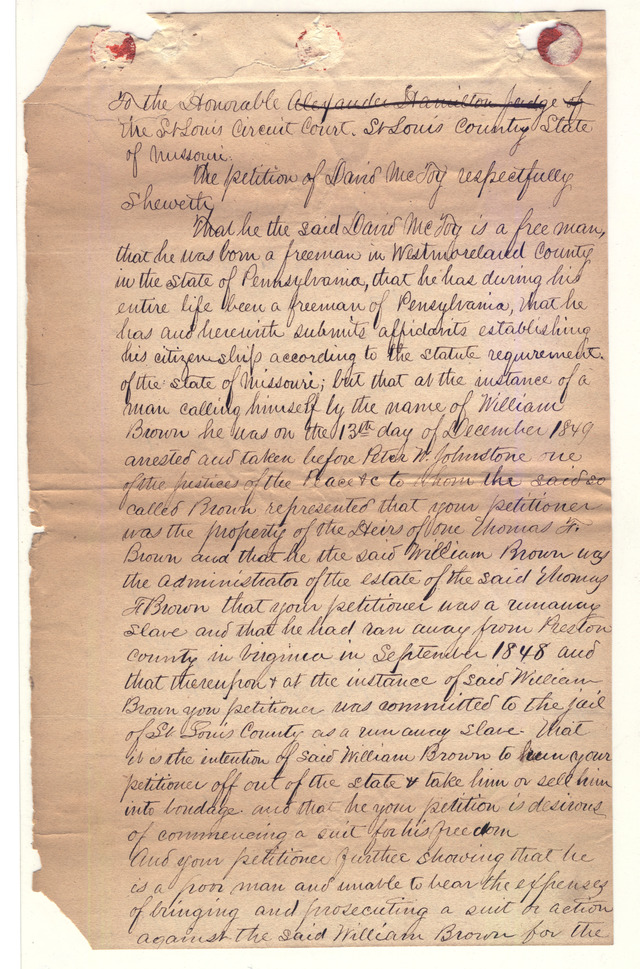 To the Honorable Alexander Hamilton judge of
the St Louis Circuit Court. St Louis County State
of Missouri.
The petition of David McFoy respectfully
Sheweth
That he the said David McFoy is a free man,
that he was born a freeman in Westmoreland County
in the State of Pennsylvania, that he has during his
entire life been a freeman of Pensylvania, that he
has and herewith submits affidants establishing
his citizenship according to the statute requirement.
of the state of Missouri; but that at the instance of a
man calling himself by the name of William
Brown he was on the 13th day of December 1849
arrested and taken before Peter W. Johnstone one
of the justices of the Peace &c to whom the said so
called Brown represented that your petitioner
was the property of the Heirs of one Thomas F.
Brown and that he the said William Brown was
the administrator of the estate of the said Thomas
F Brown that your petitioner was a runaway
slave and that he had ran away from Preston
County in Virginia in September 1848 and
that thereupon & at the instance of said William
Brown your petitioner was committed to the jail
of St Louis County as a runaway slave. That
it is the intention of said William Brown to your
petitioner off out of the state & take him or sell him
into bondage. and that he your petition is desirous
of commencing a suit for his freedom
And your petitioner further showing that he
is a poor man and unable to bear the expenses
of bringing and prosecuting a suit or action
against the said William Brown for the